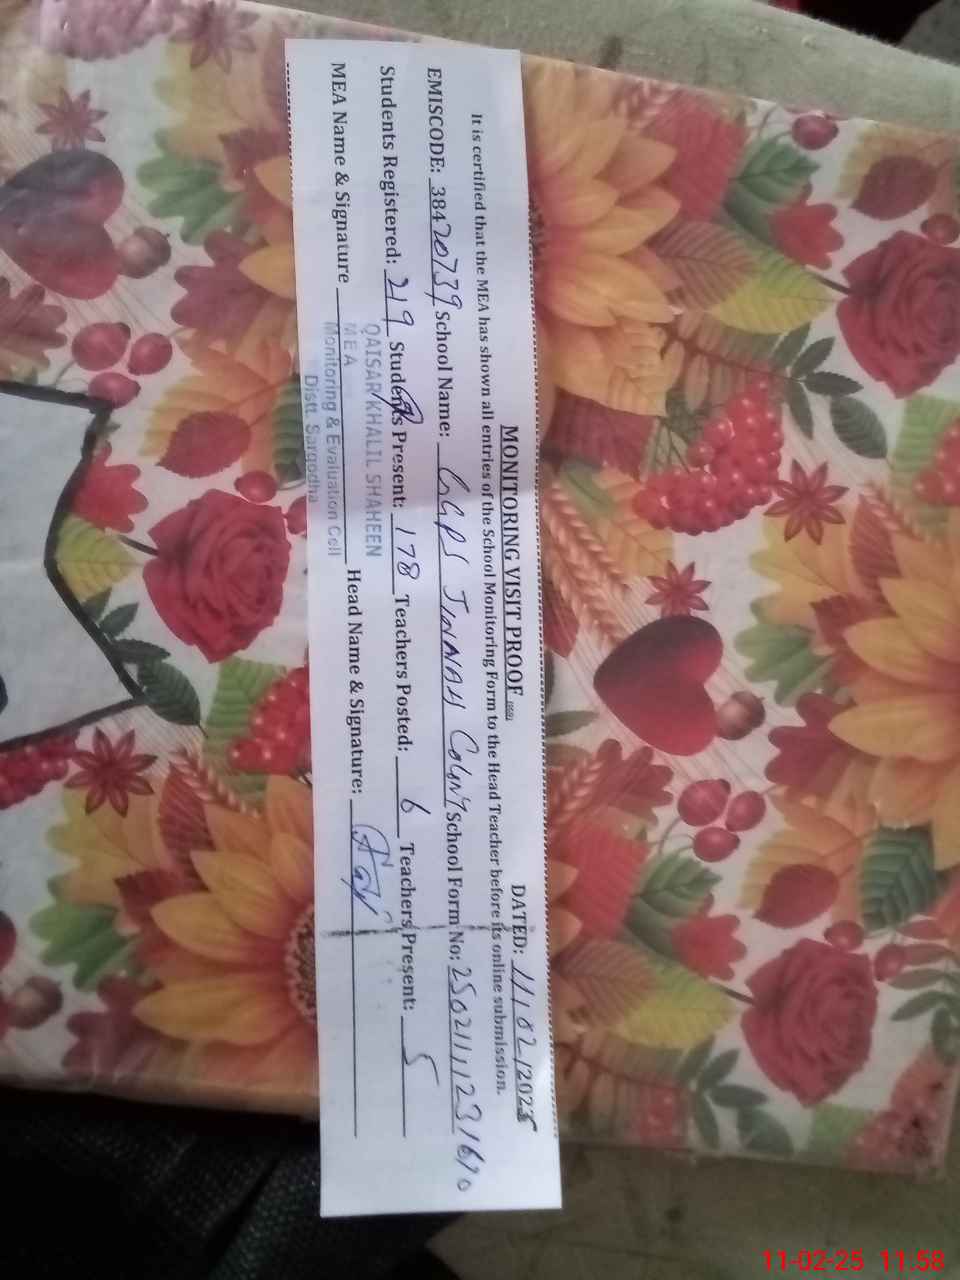 MONITORING VISIT PROOF DATED: 11/02/2025
It is certified that the MEA has shown all entries of the School Monitoring Form to the Head Teacher before its online submission.
EMISCODE: 38420739 School Name: GGPS JINNAH COLONY School Form No:
Students Registered: 219 Students Present: 178 Teachers Posted: 6 Teachers Present: 5
MEA Name & Signature Head Name & Signature:
QAISAR KHALIL SHAHEEN
MEA
Monitoring & Evaluation Cell
Distt. Sargodha
11-02-25 11:58